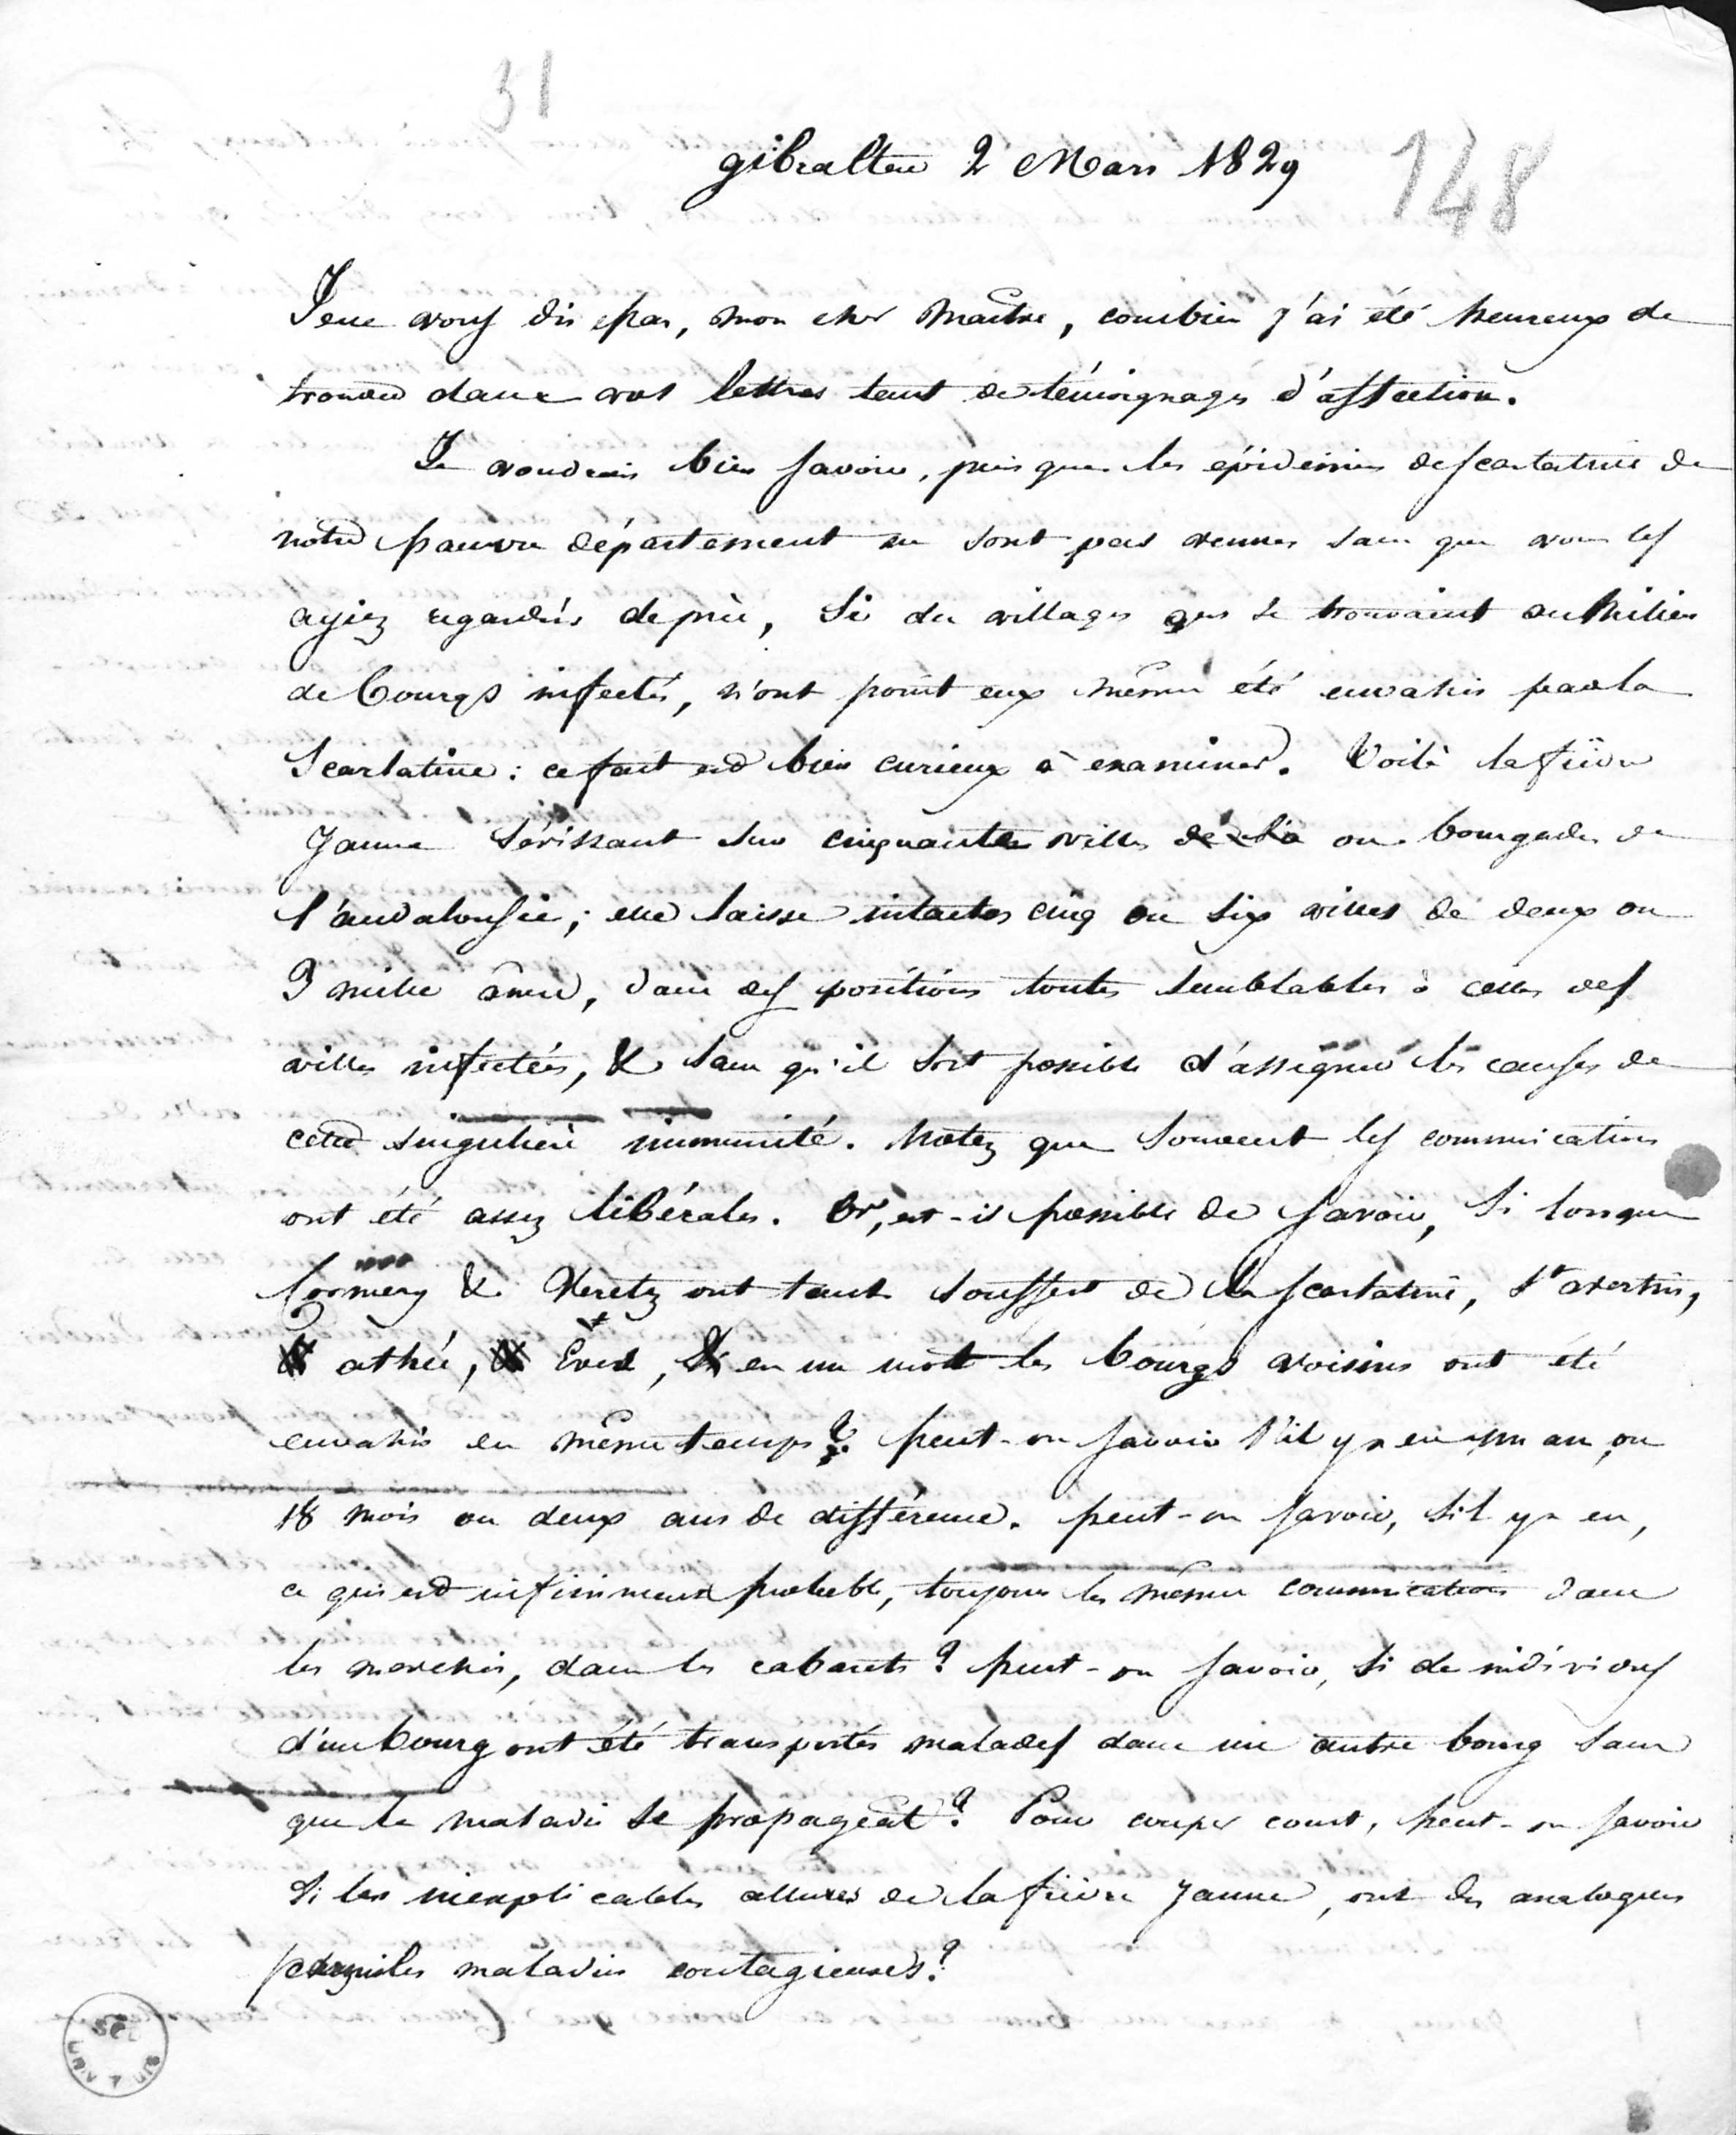 31
gibraltar 2 Mars 1829
148
Je ne vous dis pas, mon cher Maitre, combien j'ai été heureux de
trouver dans vos lettres tant de témoignages d'affection.
Je voudrais bien savoir, puisque les épidémies de scarlatine de
notre pauvre département ne sont pas venues sans que vous les
ayiez regardées de près, si des villages qui se trouvaient au milieu
de bourgs infectés, n'ont point eux mêmes été envahis par la
Scarlatine : ce fait est bien curieux à examiner. Voilà la fièvre
jaune sévissant sur cinquante villes ou bourgades de
l'andalousie ; elle laisse intactes cinq ou six villes de deux ou
3 mille âmes, dans des positions toutes semblables à celles des
villes infectées, & sans qu'il soit possible d'assigner les causes de
cette singulière immunité. Notez que souvent les communications
ont été assez libérales. Or, est-il possible de savoir, si lorsque
Cormery & Veretz ont tant souffert de la scarlatine, St avertin,
athée, Evres, en un mot les bourgs voisins ont été
envahis en même temps ? peut-on savoir s'il y a eu un an, ou
18 mois ou deux ans de différence. peut-on savoir, s'il y a eu,
ce qui est infiniment probable, toujours les mêmes communications dans
les marchés, dans les cabarets ? peut-on savoir, si des individus
d'un bourg ont été transportés malades dans un autre bourg sans
que la maladie se propageât ? Pour couper court, peut-on savoir
si les inexplicables allures de la fièvre jaune, ont des analogues
parmi les maladies contagieuses ?